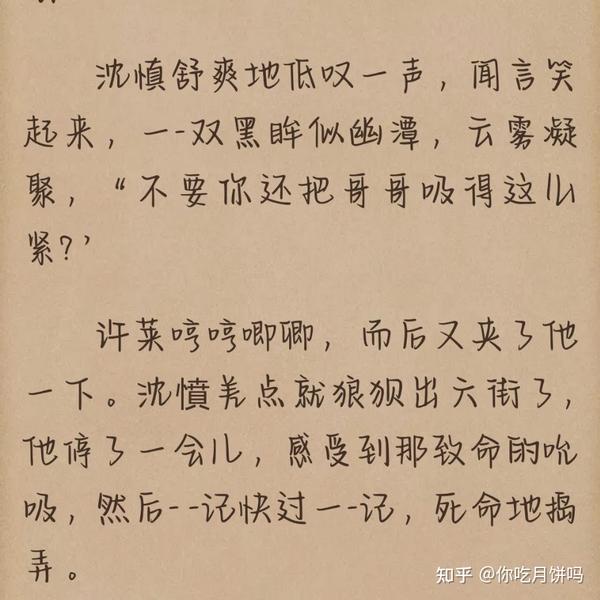 沈慎舒爽地低叹一声，闻言笑
起来，一-双黑眸似幽潭，云雾凝
聚，“不要你还把哥哥吸得这么
紧?’
许莱哼哼唧唧，而后又夹了他
一下。沈憤羌点就狼狈出六街了，
他停了一会儿，感受到那致命的吮
吸，然后--记快过一-记，死命地捣
弄。
知乎 @你吃月饼吗